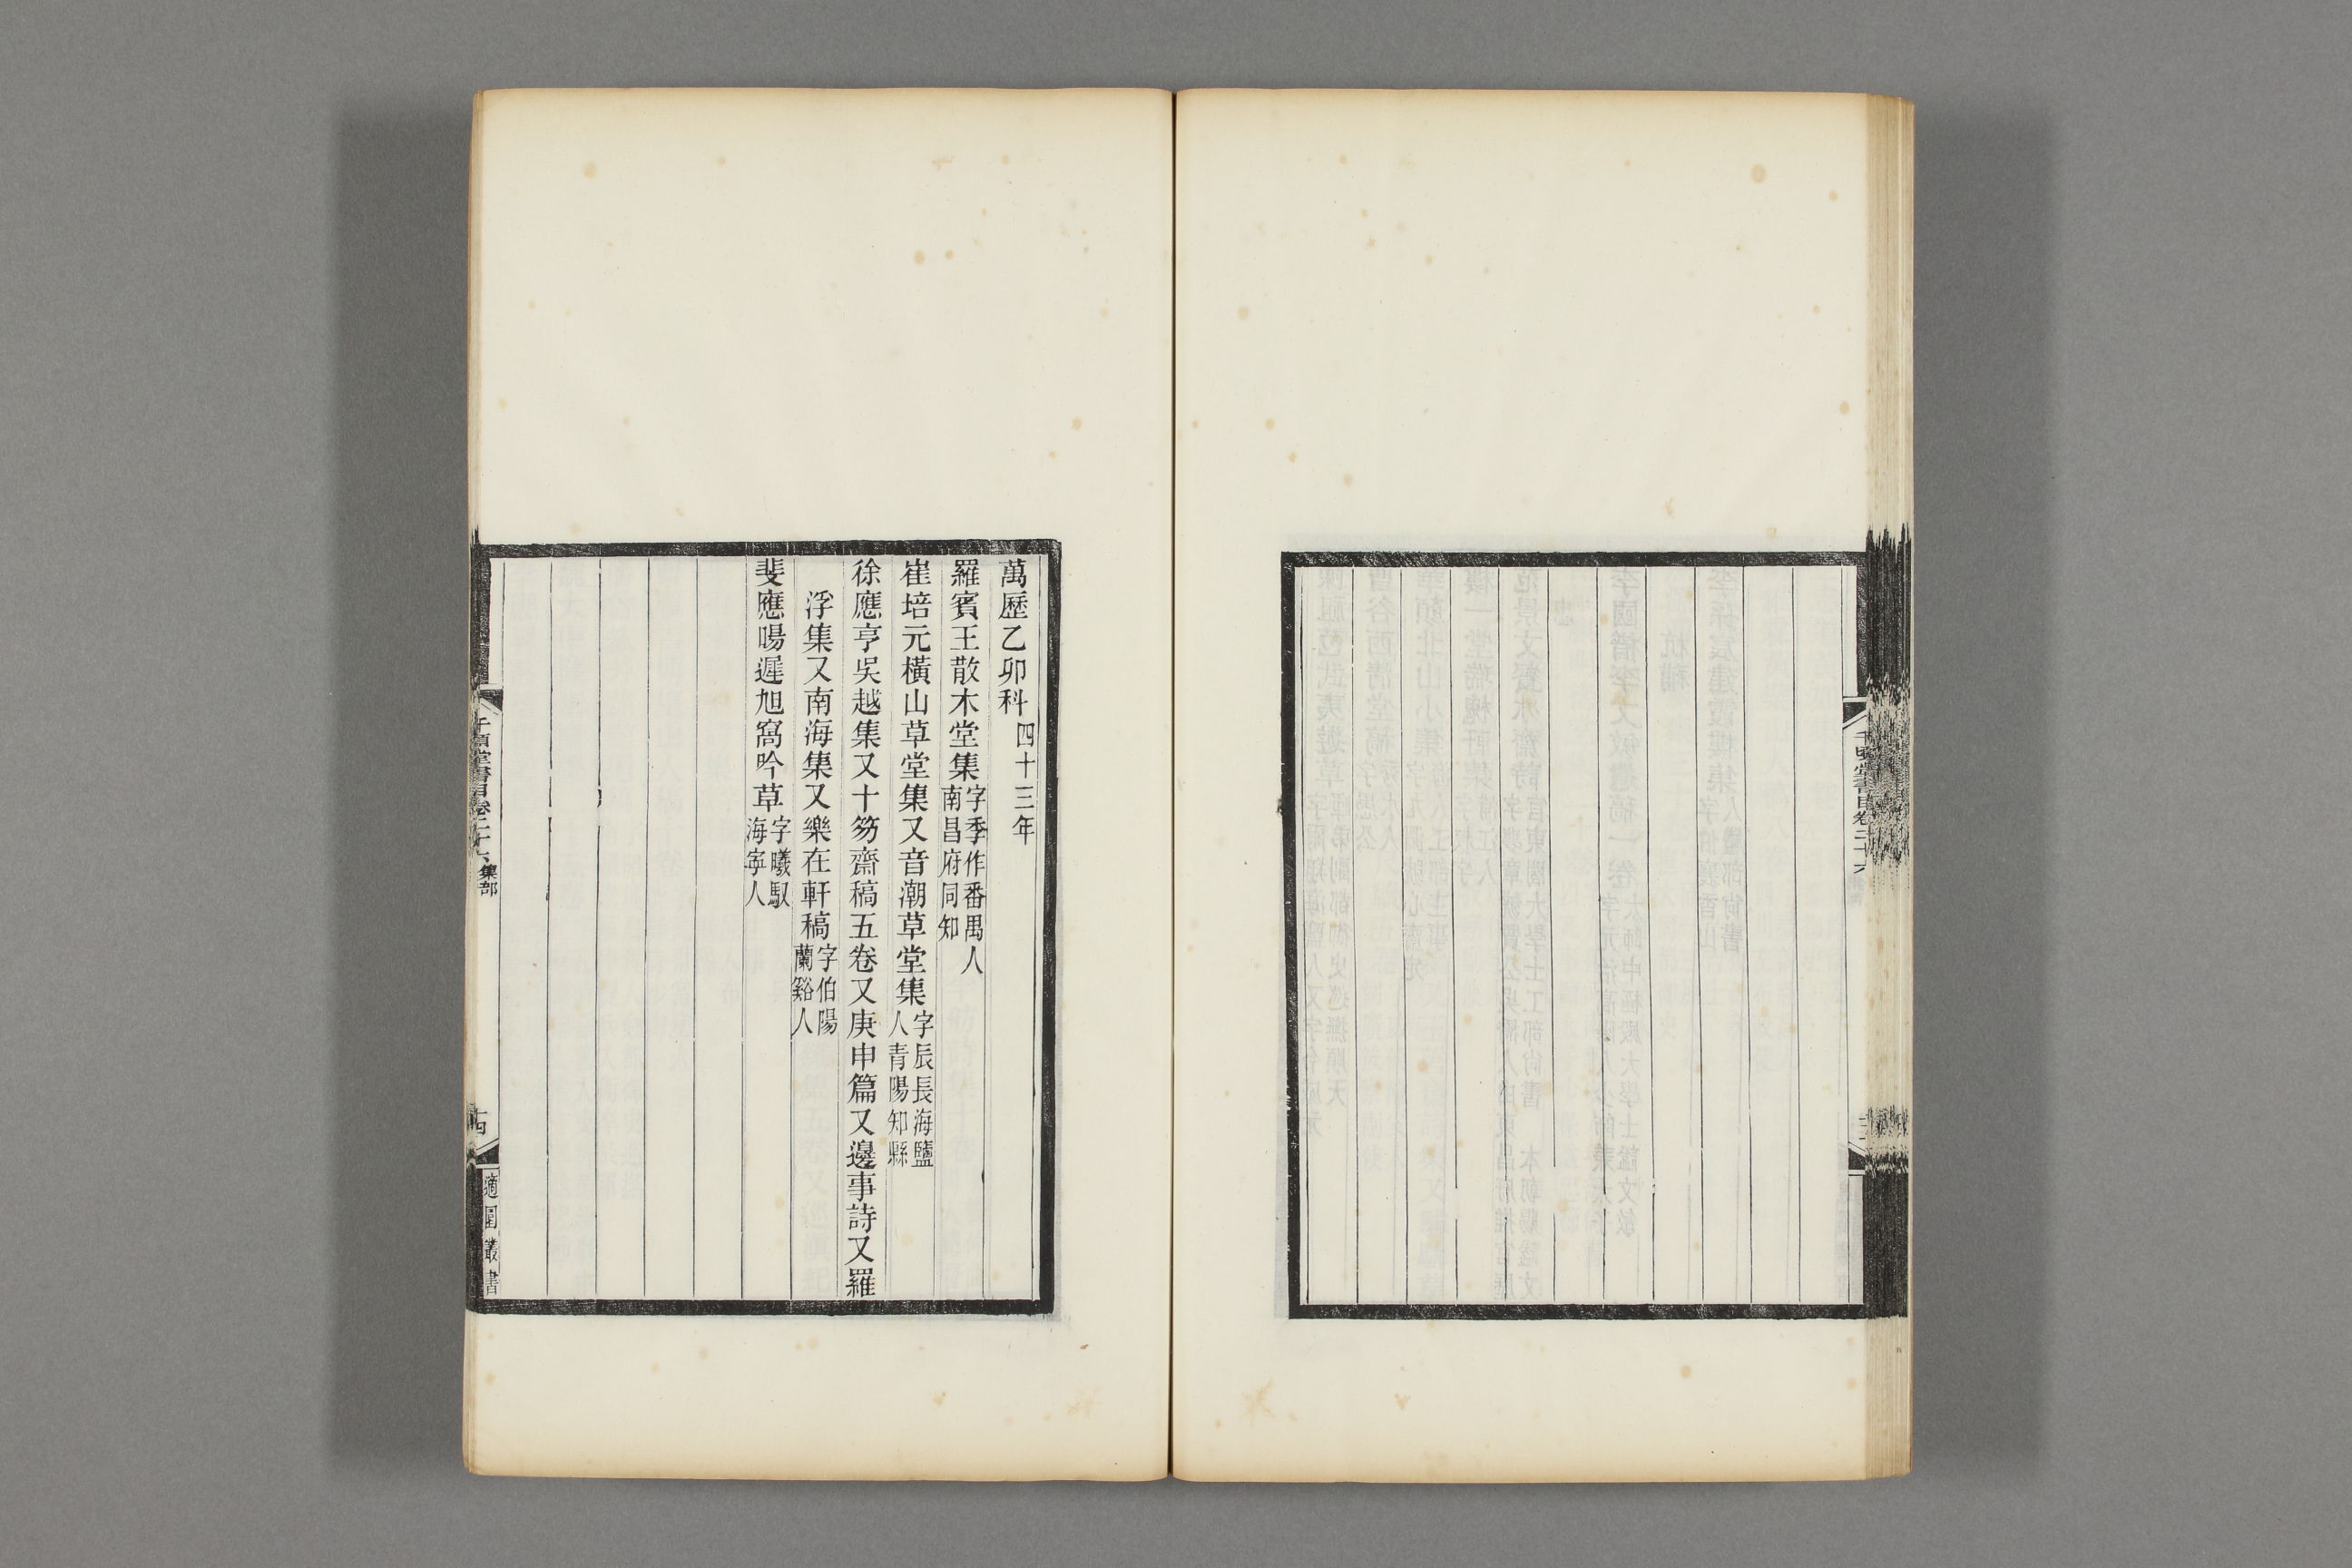 千頃堂書目卷二十六
萬歷乙卯科四十三年
羅賓王散木堂集字季作番禺人南昌府同知
崔培元橫山草堂集又音潮草堂集字辰長海鹽人青陽知縣
徐應亨吳越集又十笏齋稿五卷又庚申篇又邊事詩又羅
浮集又南海集又樂在軒稿字伯陽蘭谿人
斐應暘遲旭窩吟草字曦馭海寧人
千頃堂書目卷二十六集部
十四
適園叢書